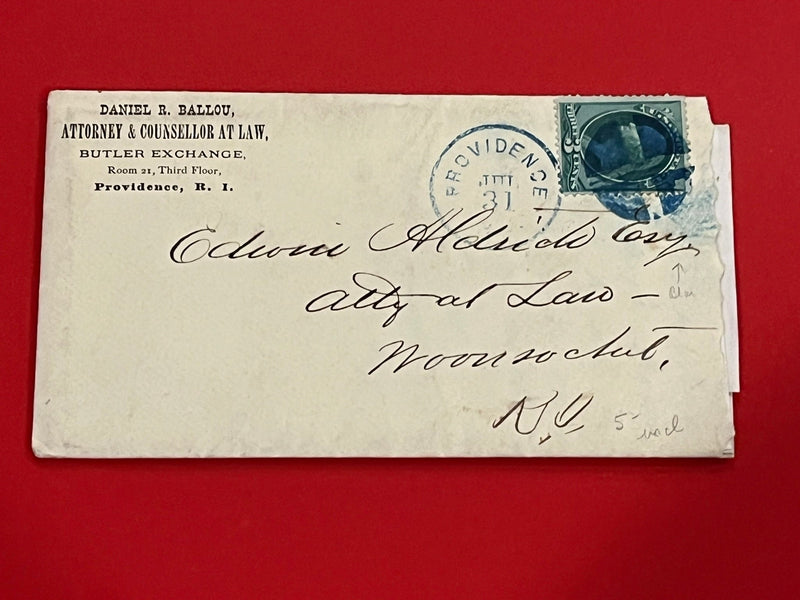 DANIEL R. BALLOU,
ATTORNEY & COUNSELLOR AT LAW,
BUTLER EXCHANGE,
Room 21, Third Floor,
Providence, R. I.
PROVIDENCE
JUL
31
Edwin Aldrich Esq.
Atty at Law –
Woonsocket,
R.I.
5-